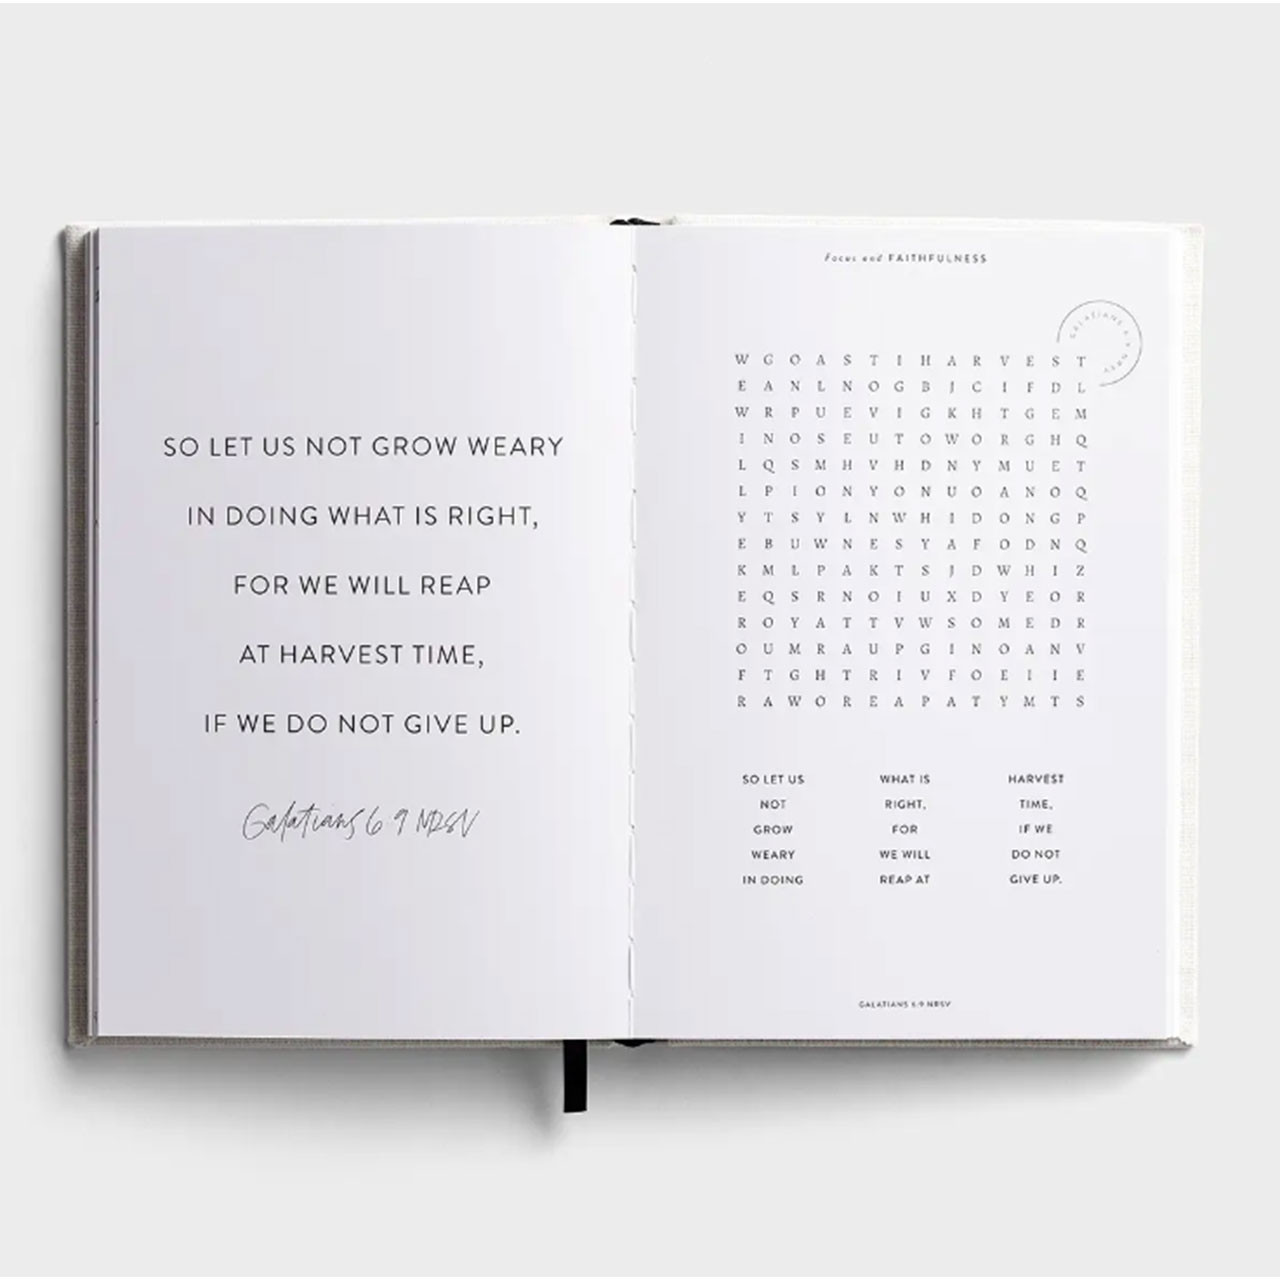 SO LET US NOT GROW WEARY
IN DOING WHAT IS RIGHT,
FOR WE WILL REAP
AT HARVEST TIME,
IF WE DO NOT GIVE UP.
Galatians 6:9 NRSV
Focus and FAITHFULNESS
GALATIANS 6:9 NRSV
W G O A S T I H A R V E S T
E A N L N O G B J C I F D L
W R P U E V I G K H T G E M
I N O S E U T O W O R G H Q
L Q S M H V H D N Y M U E T
L P I O N Y O N U O A N O Q
Y T S Y L N W H I D O N G P
E B U W N E S Y A F O D N Q
K M L P A K T S J D W H I Z
E Q S R N O I U X D Y E O R
R O Y A T T V W S O M E D R
O U M R A U P G I N O A N V
F T G H T R I V F O E I I E
R A W O R E A P A T Y M T S
SO LET US
NOT
GROW
WEARY
IN DOING
WHAT IS
RIGHT,
FOR
WE WILL
REAP AT
HARVEST
TIME,
IF WE
DO NOT
GIVE UP.
GALATIANS 6:9 NRSV